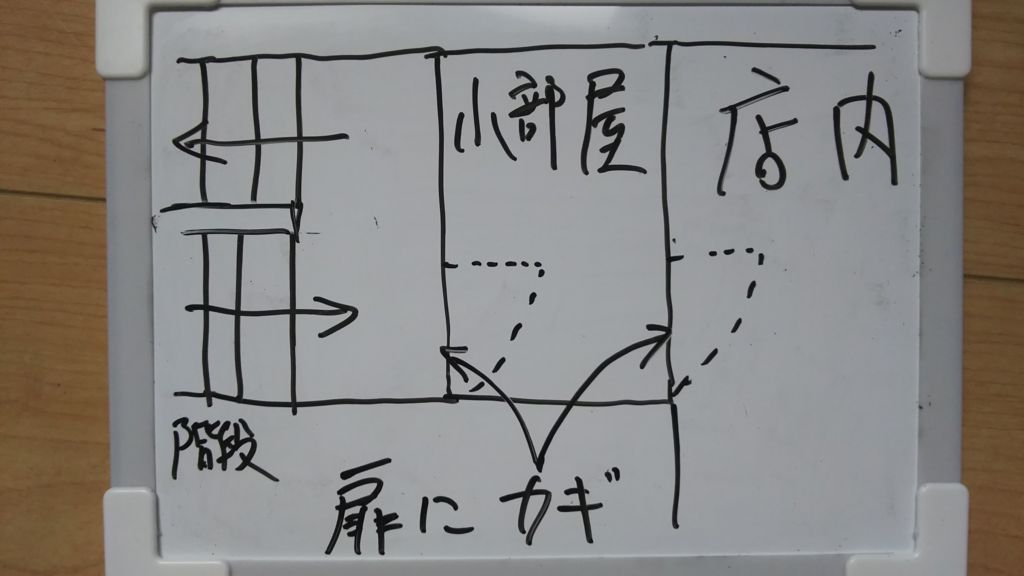 小部屋
店内
階段
扉にカギ